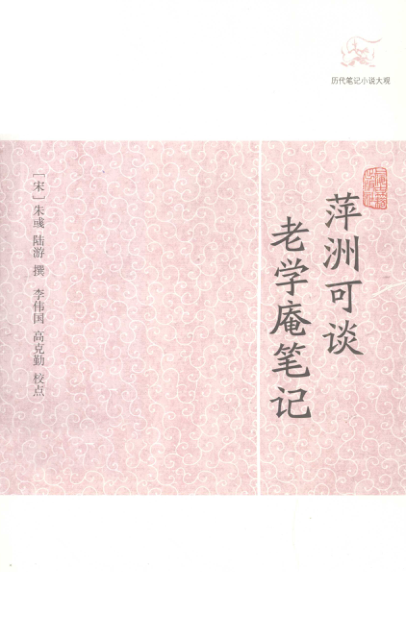 历代笔记小说大观
萍洲可谈
老学庵笔记
［宋］朱彧 陆游 撰 李伟国 高克勤 校点